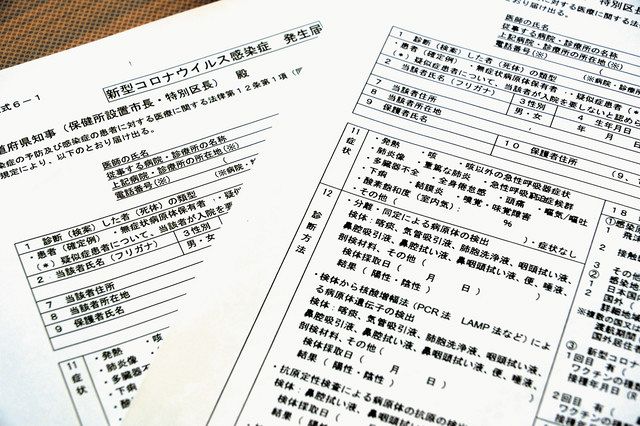 式6-1
新型コロナウイルス感染症 発生届
道府県知事（保健所設置市長・特別区長） 殿
染症の予防及び感染症の患者に対する医療に関する法律第12条第1項（
規定により、以下のとおり届け出る。
医師の氏名
従事する病院・診療所の名称
上記病院・診療所の所在地(※)
電話番号(※) (
1 診断（検案）した者（死体）の類型
・患者（確定例）・無症状病原体保有者・疑似
(＊) 疑似症患者について、当該者が入院を要
2 当該者氏名（フリガナ）
3 性別
男・女
7 当該者住所
8 当該者所在地
9 保護者氏名
11
症状
・発熱
・肺炎像
・多臓器不全
・下痢
特別区長
に対する医療に関する法
り届け出る。
医師の氏名
従事する病院・診療所の名称
上記病院・診療所の所在地(※)
電話番号(※)
(※病院・診療
1 診断（検案）した者（死体）の類型
・患者（確定例）・無症状病原体保有者・疑似症患者
(＊) 疑似症患者について、当該者が入院を要しないと認め
2 当該者氏名（フリガナ）
3 性別
男・女
4 生年月日
年 月 日
7 当該者住所
8 当該者所在地
9 保護者氏名
10 保護者住所
(9、
11
症状
・発熱 ・咳 ・咳以外の急性呼吸器症状
・肺炎像 ・重篤な肺炎 ・急性呼吸窮迫症候群
・多臓器不全 ・全身倦怠感 ・頭痛 ・嘔気/嘔吐
・下痢 ・結膜炎 ・嗅覚・味覚障害
・酸素飽和度（室内気）： %
・その他( )・症状なし
12
診断方法
・分離・同定による病原体の検出
検体：喀痰、気管吸引液、肺胞洗浄液、咽頭拭い液、
鼻腔吸引液、鼻腔拭い液、鼻咽頭拭い液、便、唾液、
剖検材料、その他( )
検体採取日（ 月 日）
結果（ 陽性・陰性 ）
・検体から核酸増幅法（PCR法 LAMP法など）によ
る病原体遺伝子の検出
検体：喀痰、気管吸引液、肺胞洗浄液、咽頭拭い液、
鼻腔吸引液、鼻腔拭い液、鼻咽頭拭い液、便、唾液、
剖検材料、その他( )
検体採取日（ 月 日）
結果（ 陽性・陰性 ）
・抗原定性検査による病原体の抗原の検出
検体：鼻腔拭い液、
検体採取日（ 月
結果（ 陽性
18
①感染
1 飛
2 接触
3 その
②感染地
1 日本
2 国外
詳細地
※複数の国又
渡航期間
国外居住
③ 新型コロ
1回目 有（
ワクチンの種
接種年月日
2回目 有（
ワクチンの
接種年